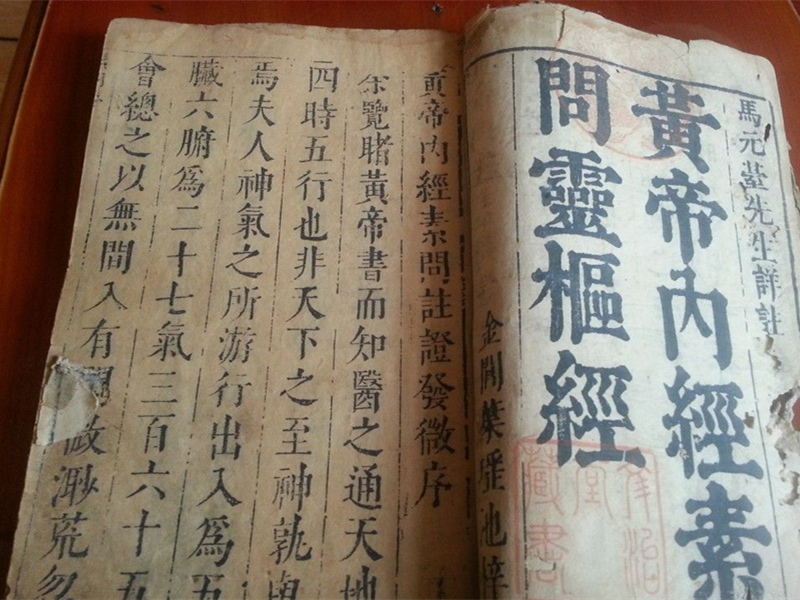 馬元臺先生詳註
黃帝內經素
問靈樞經
金閶葉瑤池梓
黃帝內經素問註證發微序
余覽睹黃帝書而知醫之通天地
四時五行也非天下之至神孰
焉夫人神氣之所游行出入為五
臟六腑為二十七氣三百六十五
會總之以無間入有間微渺荒忽
藏書